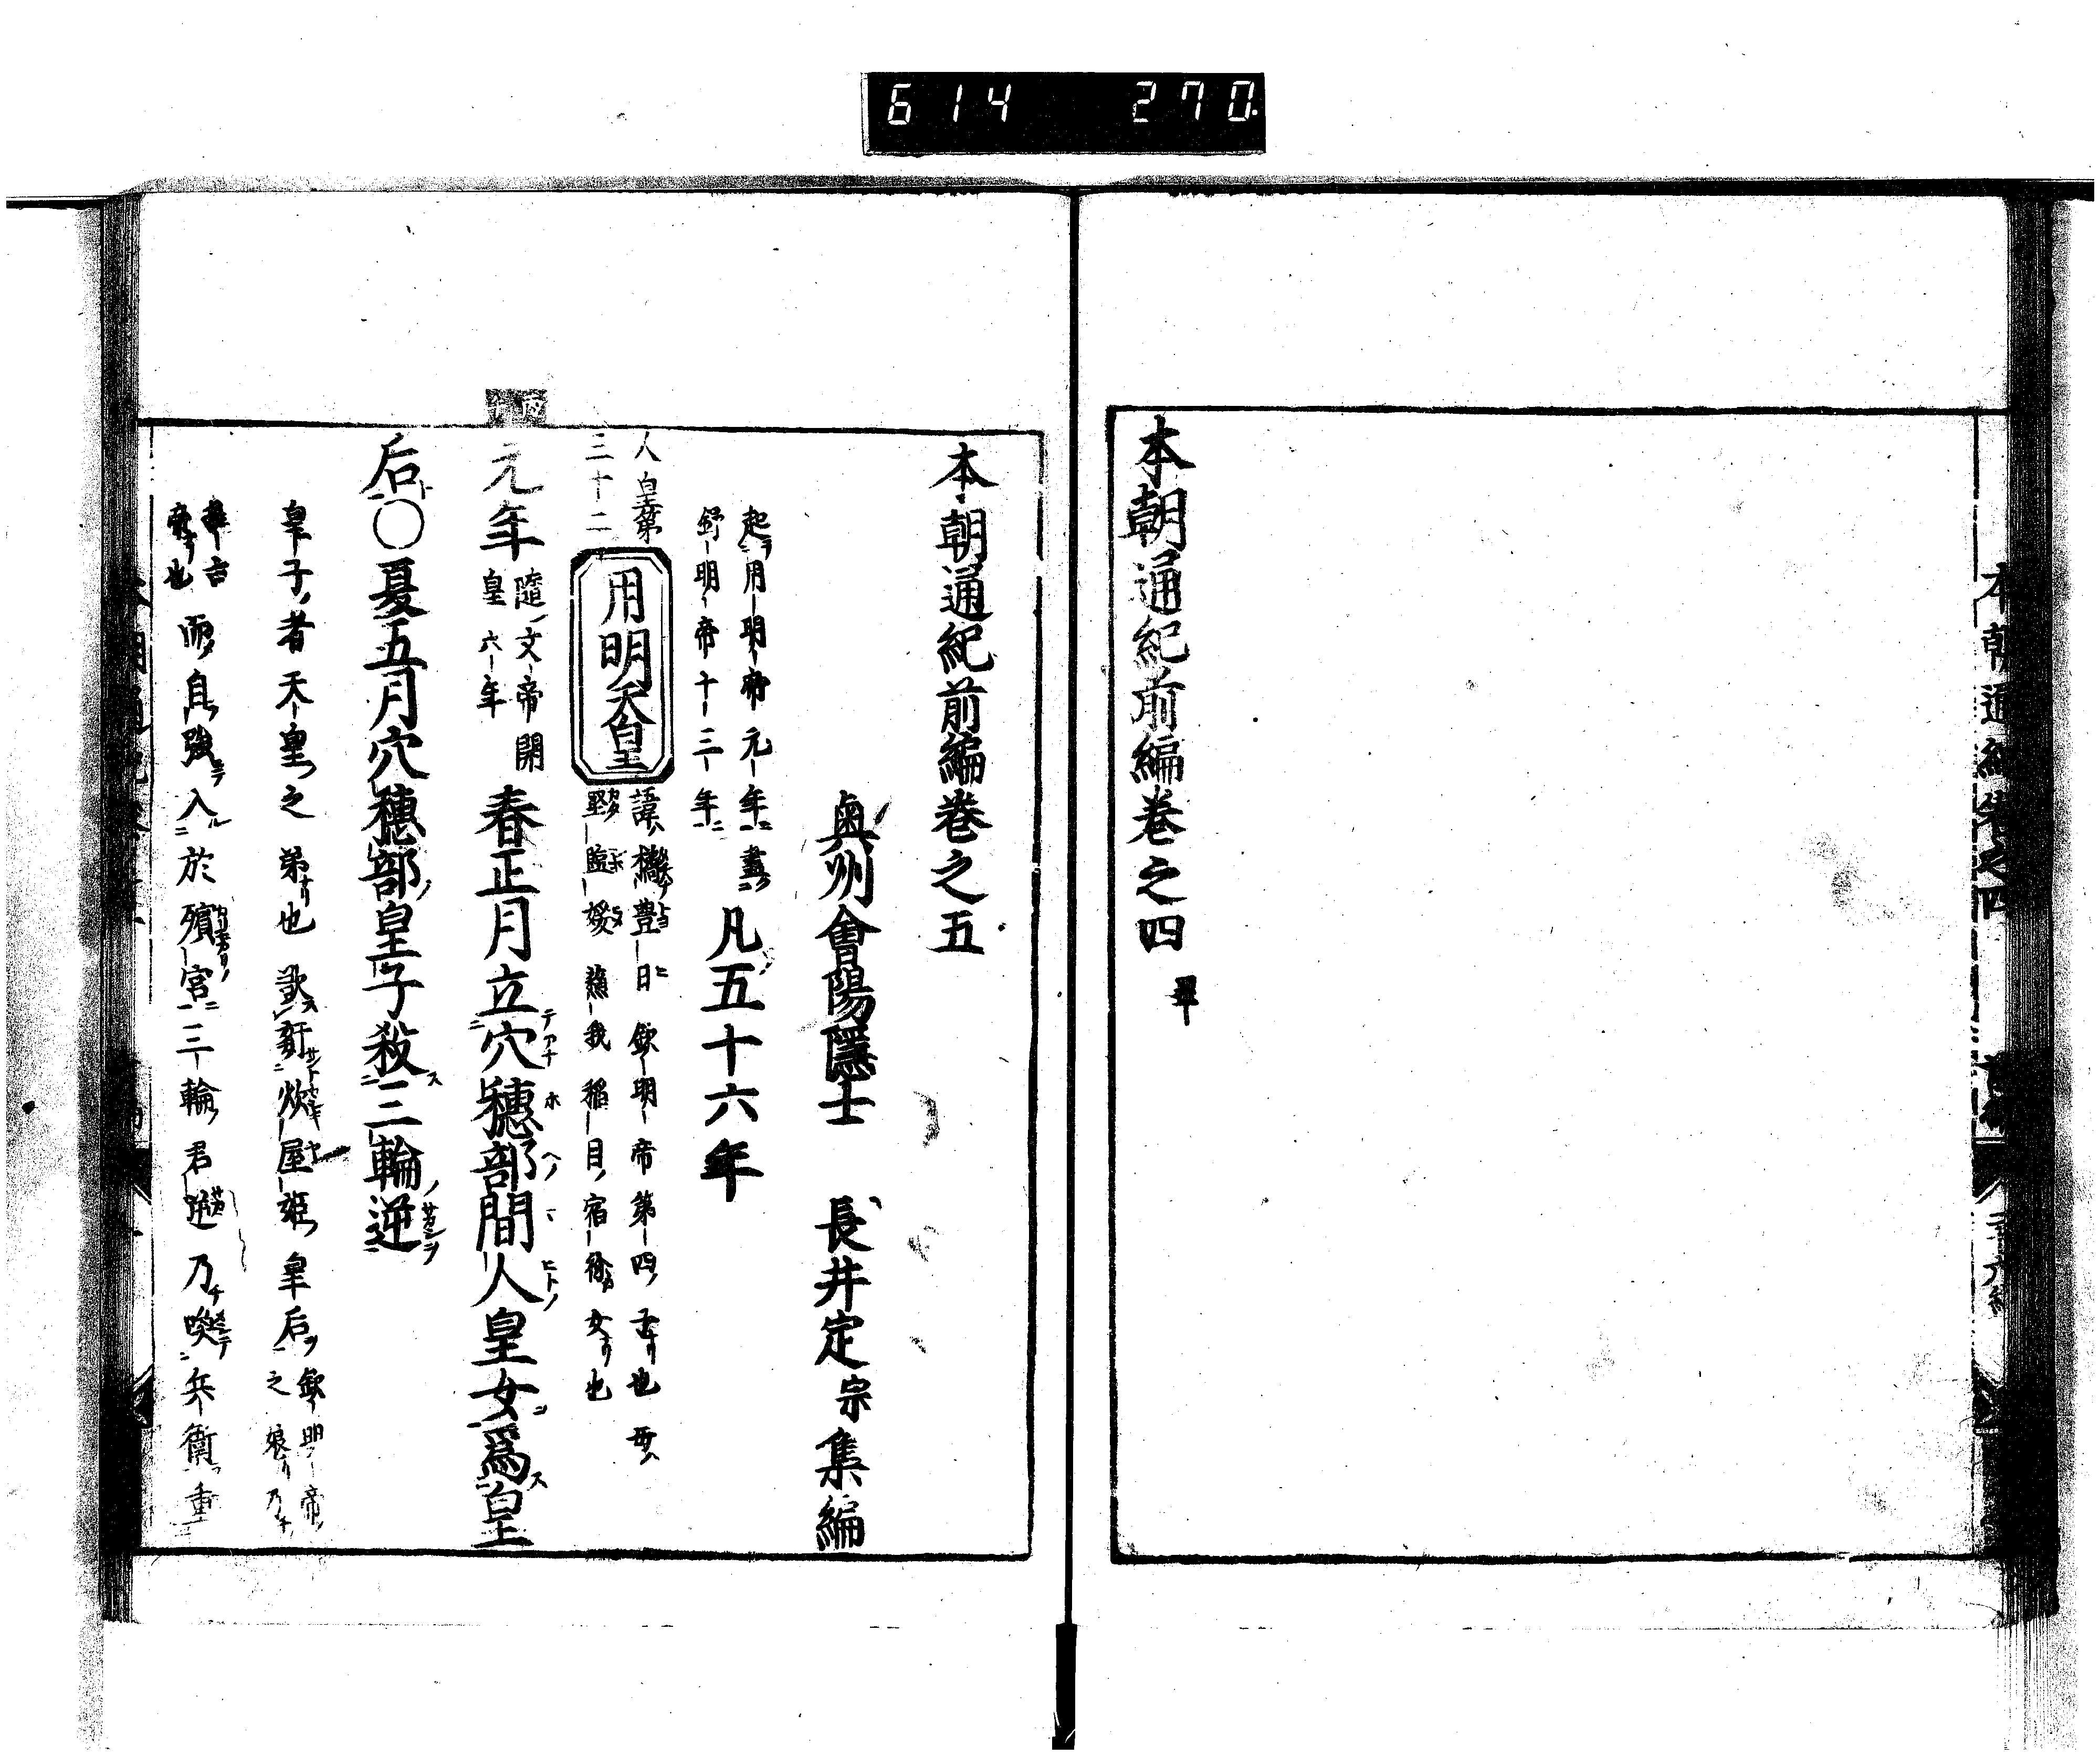 614 270
本朝通紀卷之四
本朝通紀前編卷之四 畢
本朝通紀前編卷之五
奥州會陽隱士 長井定宗集編
起用明帝元年盡
舒明帝十三年
凡五十六年
人皇第
三十二
用明天皇
諱橘豐日欽明帝第四子也母
堅鹽媛蘇我稻目宿禰女也
元年
隨文帝開
皇六年
春正月立穴穗部間人皇女爲皇
后○夏五月穴穗部皇子殺三輪逆
皇子者天皇之弟也欲姧炊屋姫皇后
欽明帝
之娘乃
而自強入於殯宮三輪君逆乃喚兵衞重